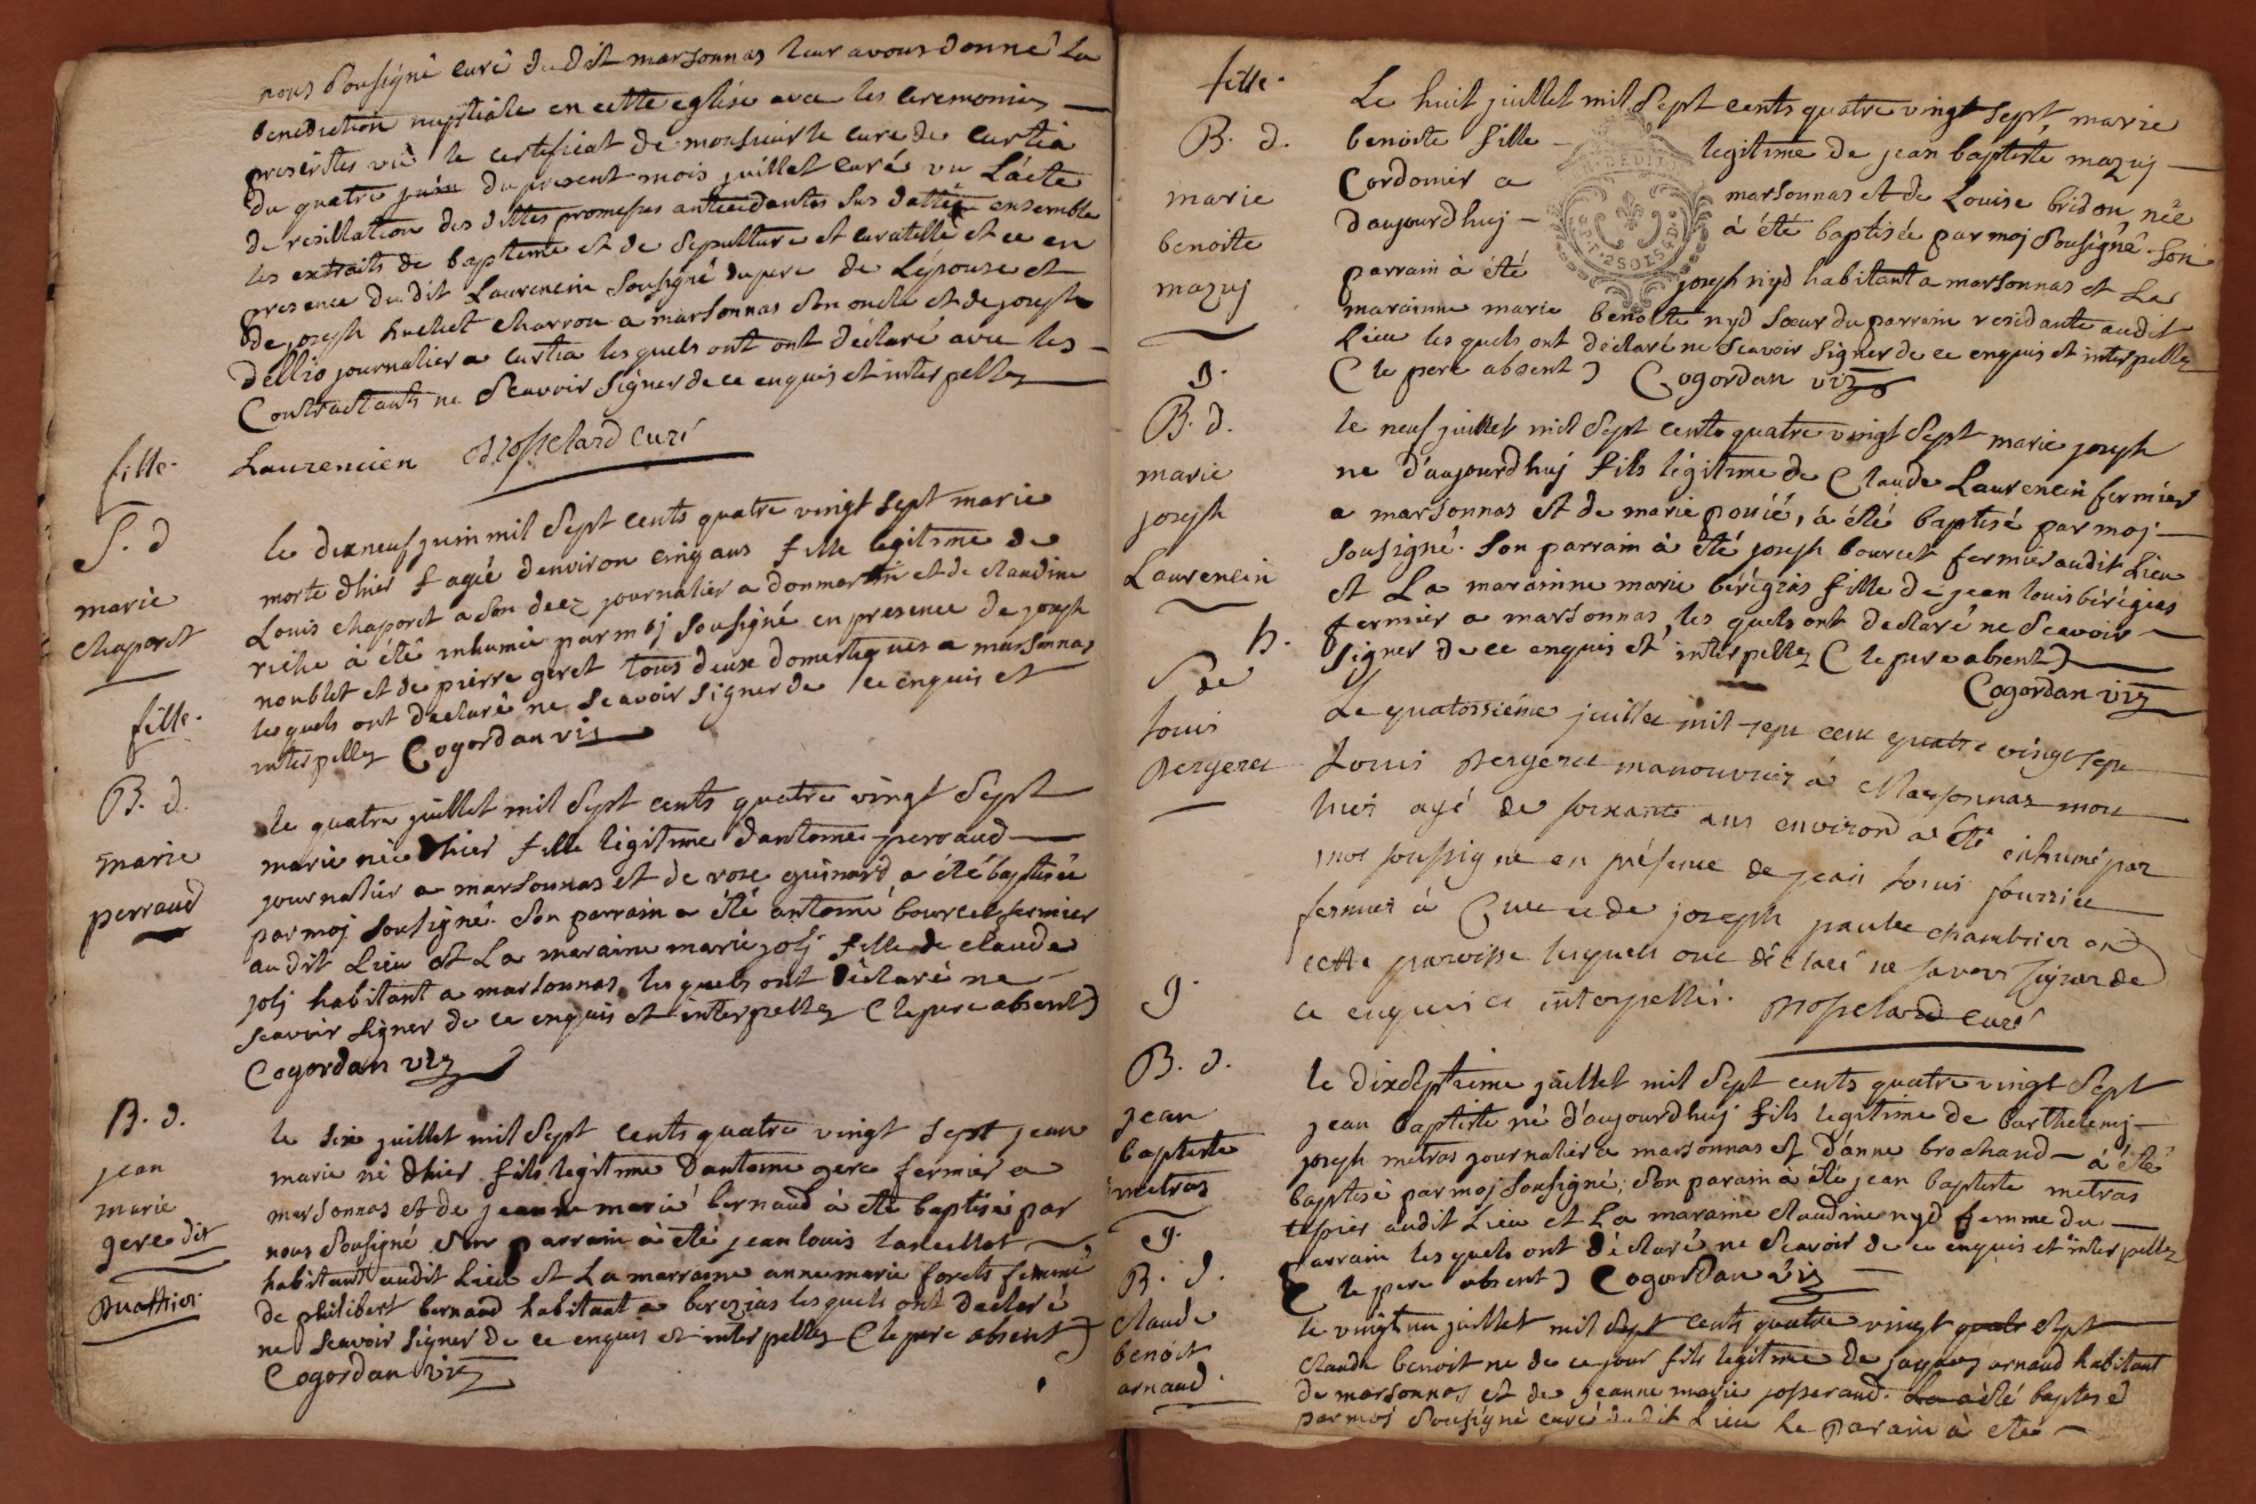 nous Sousigné curé dudit marsonnas leur avons donné La
benediction nuptiale en cette eglise avec les ceremonies
prescrites vu le certificat de monsieur le curé de curtia
du quatre juin du present mois juillet curé vu L'acte
de resillation des dittes promesses antecedantes sus datté ensemble
les extraits de baptême et de Sepulture et curatelle et ce en
presence dudit Laurencin Sousigné du pere de L'epouse et
de joseph huchet charron a marsonnas son oncle et de joseph
dellio journalier a curtia lesquels ont ont declaré avec les
Contractants ne Scavoir signer de ce enquis et interpellez
Laurencien Mosselard curé
fille.
S. d
marie
chaporet
le dixneuf juin mil Sept cents quatre vingt sept marie
morte d'hier agée d'environ cinq ans fille legitime de
Louis chaporet a Son deez journalier a donmartin et de claudine
riche à été inhumée par moj Sousigné en presence de joseph
noublet et de pierre geret tous deux domestiques a marsonnas
lesquels ont declaré ne Scavoir signer de ce enquis et
interpellez Cogordan vic
fille.
B. d.
marie
perraud
le quatre juillet mil Sept cents quatre vingt Sept
marie née d'hier fille legitime d'antoine perraud
journalier a marsonnas et de rose guinard a été baptisée
par moj Sousigné. Son parrain a été antoine bourcet fermier
audit Lieu et La maraine marie jolj fille de claude
jolj habitant a marsonnas lesquels ont déclaré ne
scavoir signer de ce enquis et interpellez (le pere absent)
Cogordan vic
B. d.
jean
marie
gere dit
le six juillet mil Sept cents quatre vingt sept jean
marie né d'hier fils legitime d'antoine gere fermier a
marsonnas et de jeanne marie bernaud à été baptisé par
nous Sousigné Son parrain à été jean louis
habitant audit Lieu et La marraine anne marie forets femme
de philibert bernaud habitant a berezias lesquels ont declaré
ne Scavoir signer de ce enquis et interpellez (le pere absent)
Cogordan vic
fille.
B. d.
marie
benoite
mazuj
Le huit juillet mil Sept cents quatre vingt sept, marie
benoite fille legitime de jean baptiste mazuj
Cordonier a marsonnas et de Louise bridon née
d'aujourd'huj à été baptisée par moj Sousigné. Son
parrain à été joseph nyd habitant a marsonnas et La
marainne marie benoite nyd Soeur du parrain residante audit
Lieu lesquels ont déclaré ne Scavoir signer de ce enquis et interpellez
(le pere absent) Cogordan vic
g.
B. d.
marie
joseph
Laurencin
le neuf juillet mil Sept cents quatre vingt Sept marie joseph
né d'aujourd'huj fils légitime de Claude Laurencin fermier
a marsonnas et de marie, à été baptisé par moj
sousigné. Son parrain à été joseph bourcet fermier audit Lieu
et La marainne marie bérégias fille de jean louis bérégias
fermier a marsonnas, lesquels ont declaré ne Scavoir
signer de ce enquis et interpellez (le pere absent)
Cogordan vic
h.
S de
Louis
Bergeret
Le quatorsiéme juillet mil sept cent quatre vingt sept
Louis Bergeret manouvrier à Marsonnas mort
hier agé de soixante ans environ a été inhumé par
moi soussigné en présence de jean louis
fermier à Cuet et de joseph chambrier en
cette paroisse lesquels ont déclaré ne savoir signer de
ce enquis et interpellés. Mosselard curé
g.
B. d.
jean
baptiste
metras
le dixseptieme juillet mil Sept cents quatre vingt Sept
jean baptiste né d'aujourd'huj fils legitime de barthelemj
joseph metras journalier a marsonnas et d'anne brochaud à été
baptisé par moj Sousigné; Son parain à été jean baptiste metras
tessier audit Lieu et La maraine claudine nyd femme du
parrain lesquels ont déclaré ne Scavoir de ce enquis et interpellez
(le pere absent) Cogordan vic
g.
B. d.
claude
benoit
arnaud.
le vingt un juillet mil Sept cents quatre vingt quatr sept
claude benoit né de ce jour fils legitime de jaques arnaud habitant
de marsonnas et de jeanne marie josserand. La à été baptisé
par moi Sousigné curé dudit Lieu le parain à été